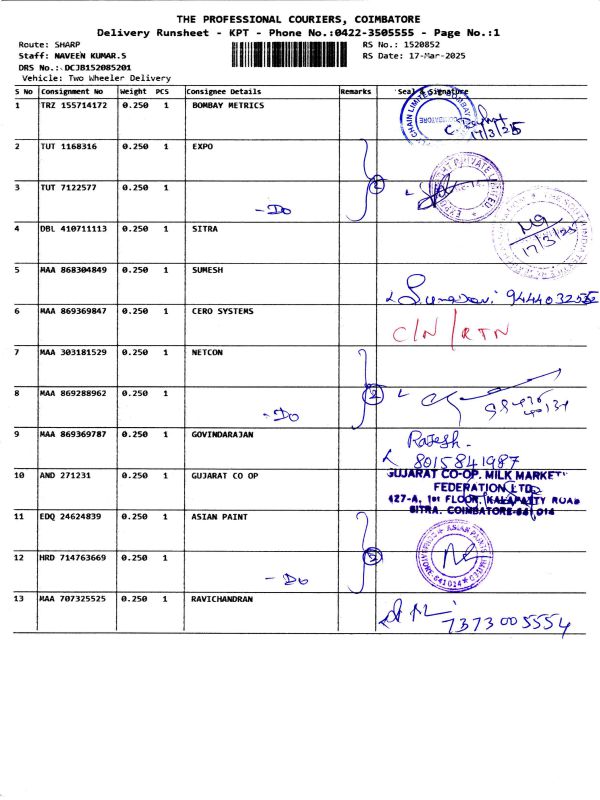 THE PROFESSIONAL COURIERS, COIMBATORE
Delivery Runsheet - KPT - Phone No.:0422-3505555 - Page No.:1
Route: SHARP RS No.: 1520852
Staff: NAVEEN KUMAR.S RS Date: 17-Mar-2025
DRS No.: DCJB152085201
Vehicle: Two Wheeler Delivery
S No Consignment No Weight PCS Consignee Details Remarks Seal & Signature
1 TRZ 155714172 0.250 1 BOMBAY METRICS
17/3/25
2 TUT 1168316 0.250 1 EXPO
3 TUT 7122577 0.250 1
- Do 2
4 DBL 410711113 0.250 1 SITRA
17/3/25
5 MAA 868304849 0.250 1 SUMESH
6 MAA 869369847 0.250 1 CERO SYSTEMS
C/N/RTN
7 MAA 303181529 0.250 1 NETCON
8 MAA 869288962 0.250 1
- Do 2
9 MAA 869369787 0.250 1 GOVINDARAJAN
Rajesh.
8015841987
10 AND 271231 0.250 1 GUJARAT CO OP
GUJARAT CO-OP. MILK MARKET
FEDERATION LTD
127-A, 1st FLOOR, KALAPATTY ROAD
SITRA. COIMBATORE-641 014
11 EDQ 24624839 0.250 1 ASIAN PAINT
12 HRD 714763669 0.250 1
- Do 2
13 MAA 707325525 0.250 1 RAVICHANDRAN
7373005554